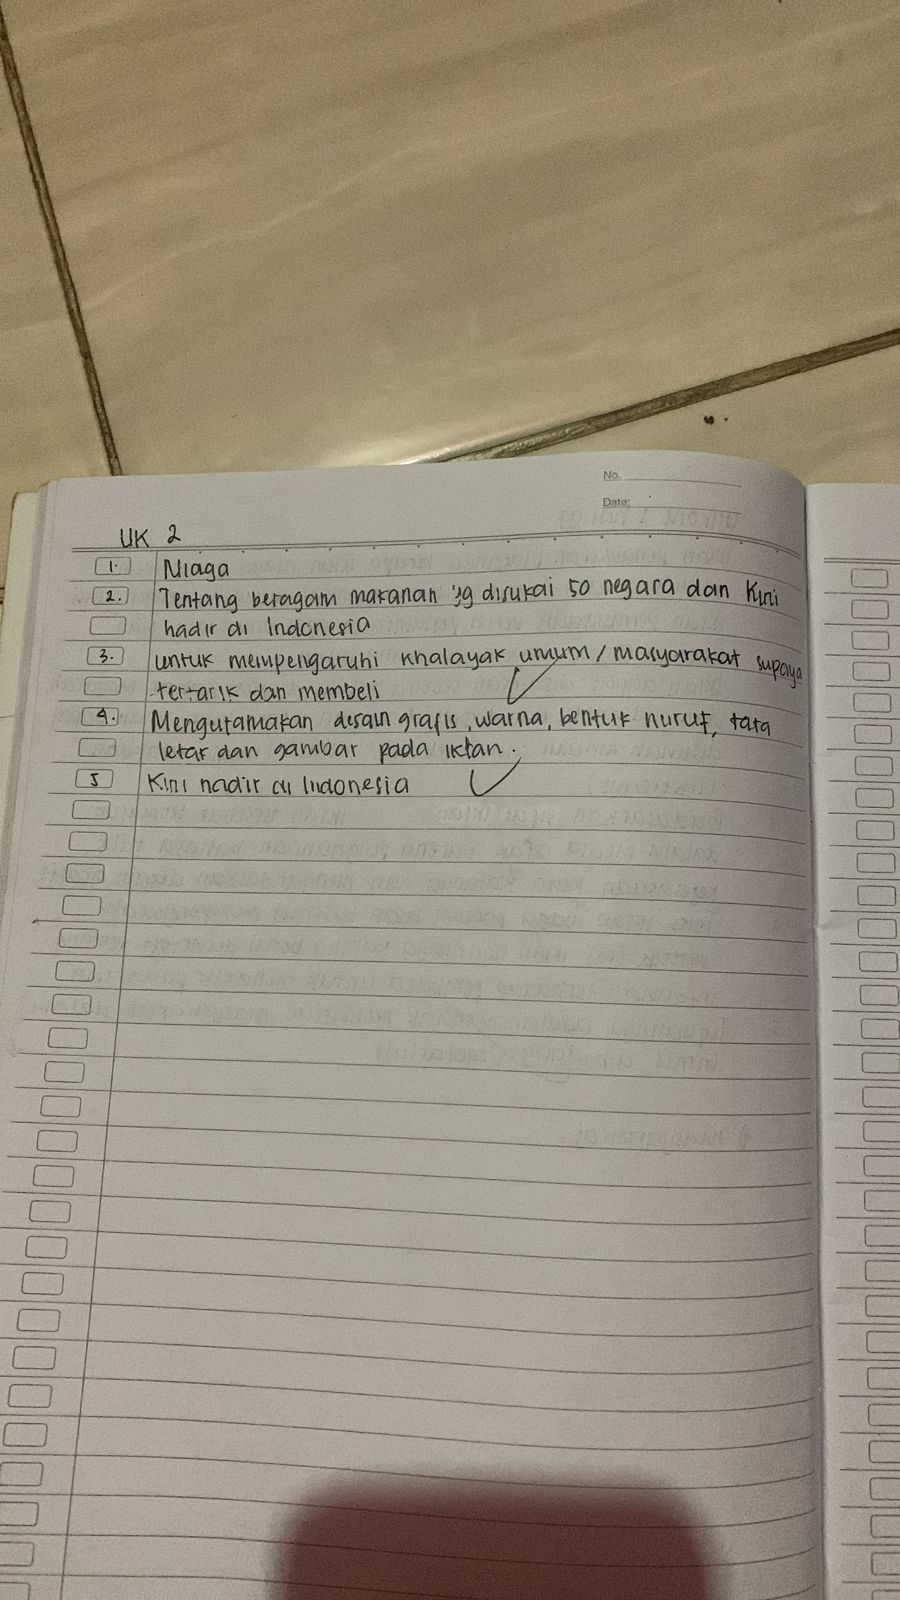 No.
Date:
UK 2
1. Niaga
2. Tentang beragam makanan yg disukai 50 negara dan Kini
hadir di Indonesia
3. untuk mempengaruhi khalayak umum / masyarakat supaya
tertarik dan membeli
4. Mengutamakan desain grafis, warna, bentuk huruf, tata
letak dan gambar pada iklan.
5 Kini hadir di Indonesia